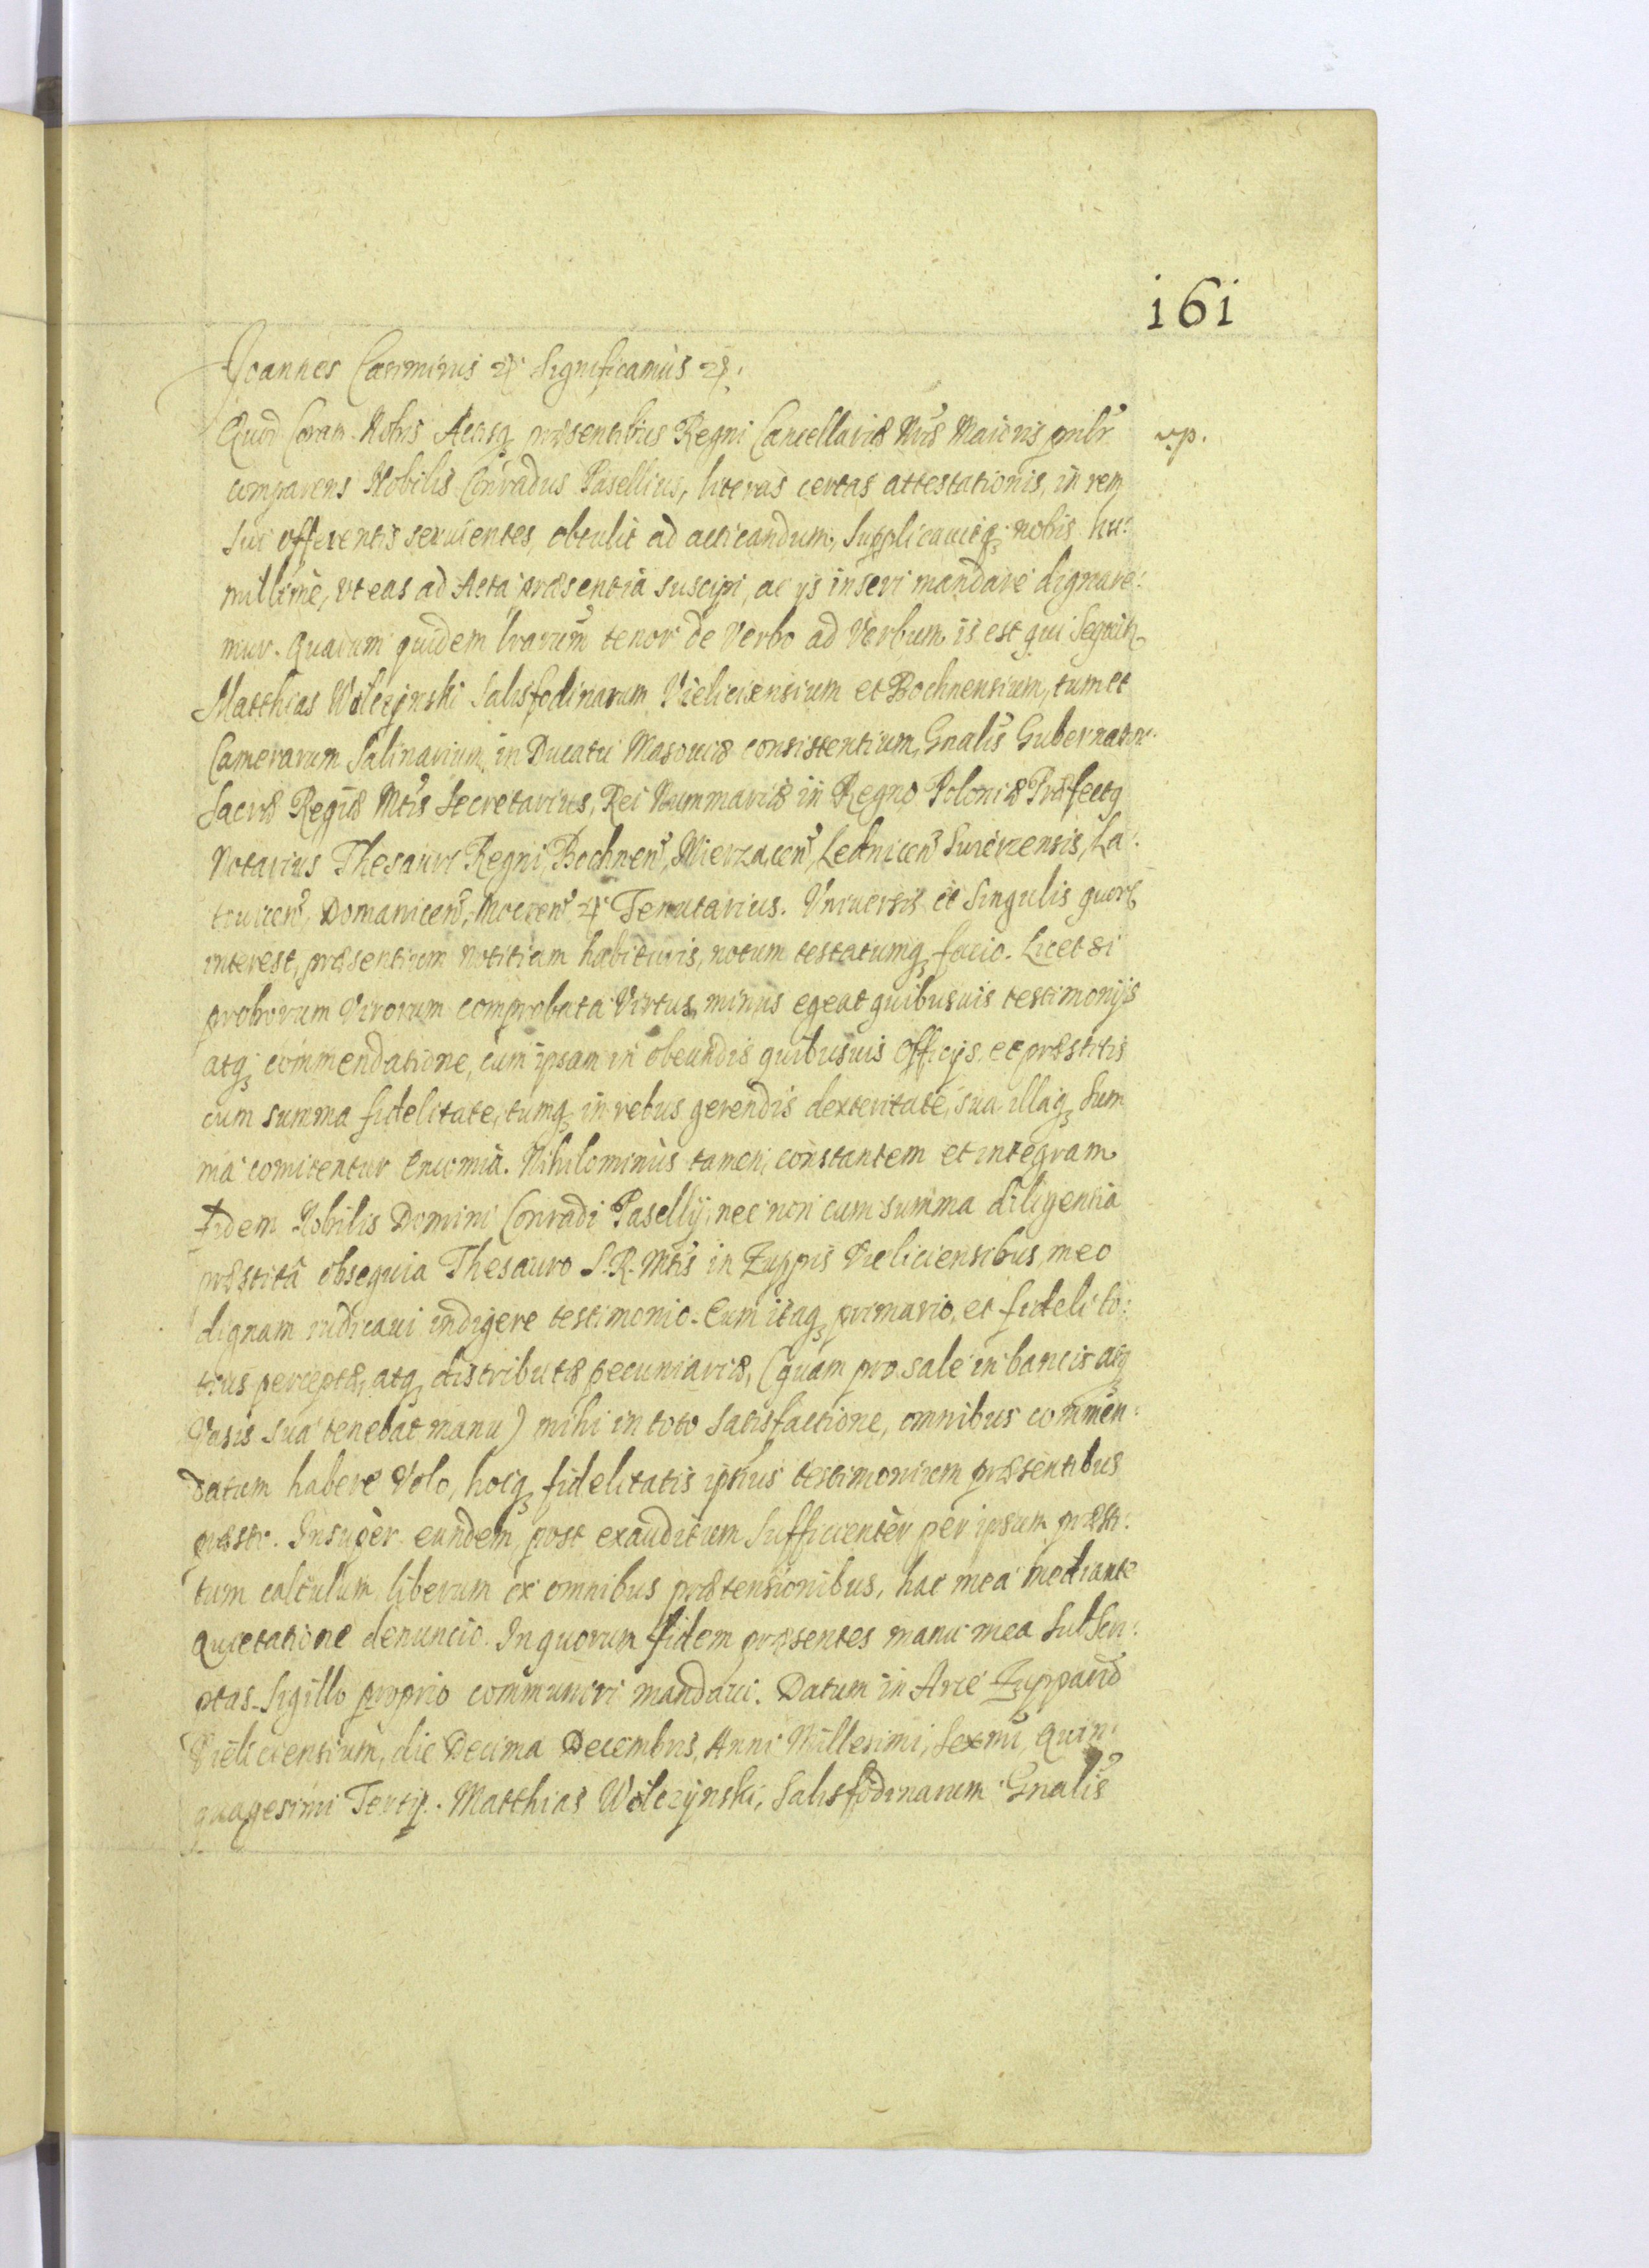 161
Joannes Casimirus etc. Significamus etc.
Quod Coram Nobis Actisq; præsentibus Regni Cancellariæ Nræ Maioris prnbr
vp.
comparens Nobilis Conradus Pasellius, literas certas attestationis, in rem
sui offerentis seruientes, obtulit ad acticandum, Supplicauitq; nobis hu:
millimè, vt eas ad Acta præsentia suscipi, ac ijs inseri mandare dignare:
mur. Quarum quidem lrarum tenor de Verbo ad Verbum is est qui Sequit
Matthias Wolczynski Salisfodinarum Vieliciensium et Bochnensium, tum et
Camerarum Salinarium in Ducatu Masouiæ consistentium, Gnalis Gubernator
Sacræ Regiæ Mtis Secretarius, Rei Nummariæ in Regno Poloniæ Præfectq
Notarius Thesauri Regni, Bochnen, Mierzacen, Lednicen Surczensis, La:
touicen, Domanicen, Mocren etc. Tenutarius. Vniuersis et Singulis quor
interest, præsentium notitiam habituris, notum testatumq; facio. Licet si
proborum Virorum comprobata Virtus, minus egeat quibusuis testimonijs
atq; commendatione, cum ipsam in obeundis quibusuis officijs, et præstitis
cum summa fidelitate, tumq; in rebus gerendis dexteritate, sua illaq; Sum
ma comitentur Encomia. Nihilominùs tamen, constantem et integram
Fidem Nobilis Domini Conradi Pasellij, nec non cum summa diligentia
præstita obsequia Thesauro S. R. Mtis in Zuppis Vieliciensibus, meo
dignam iudicaui indigere testimonio. Cum itaq; primario, et fideli to:
tius perceptæ, atq; distributæ pecuniariæ, (quam pro sale in bancis atq;
Vasis sua tenebat manu) mihi in toto Satisfactione, omnibus commen:
datum habere Volo, hocq; fidelitatis ipsius testimonium præsentibus
præsto. Insupèr eundem, post exauditum Sufficientèr per ipsum præsti:
tum calculum liberum ex omnibus prætensionibus, hac mea mediante
Quietatione denuncio. In quorum fidem præsentes manu mea Subscri:
ptas Sigillo proprio communiri mandaui. Datum in Arce Zuppariæ
Vieliciensium, die Decima Decembris, Anni Millesimi, Sexmi, Quin:
quagesimi Tertij. Matthias Wolczynski, Salisfodinarum Gnalis